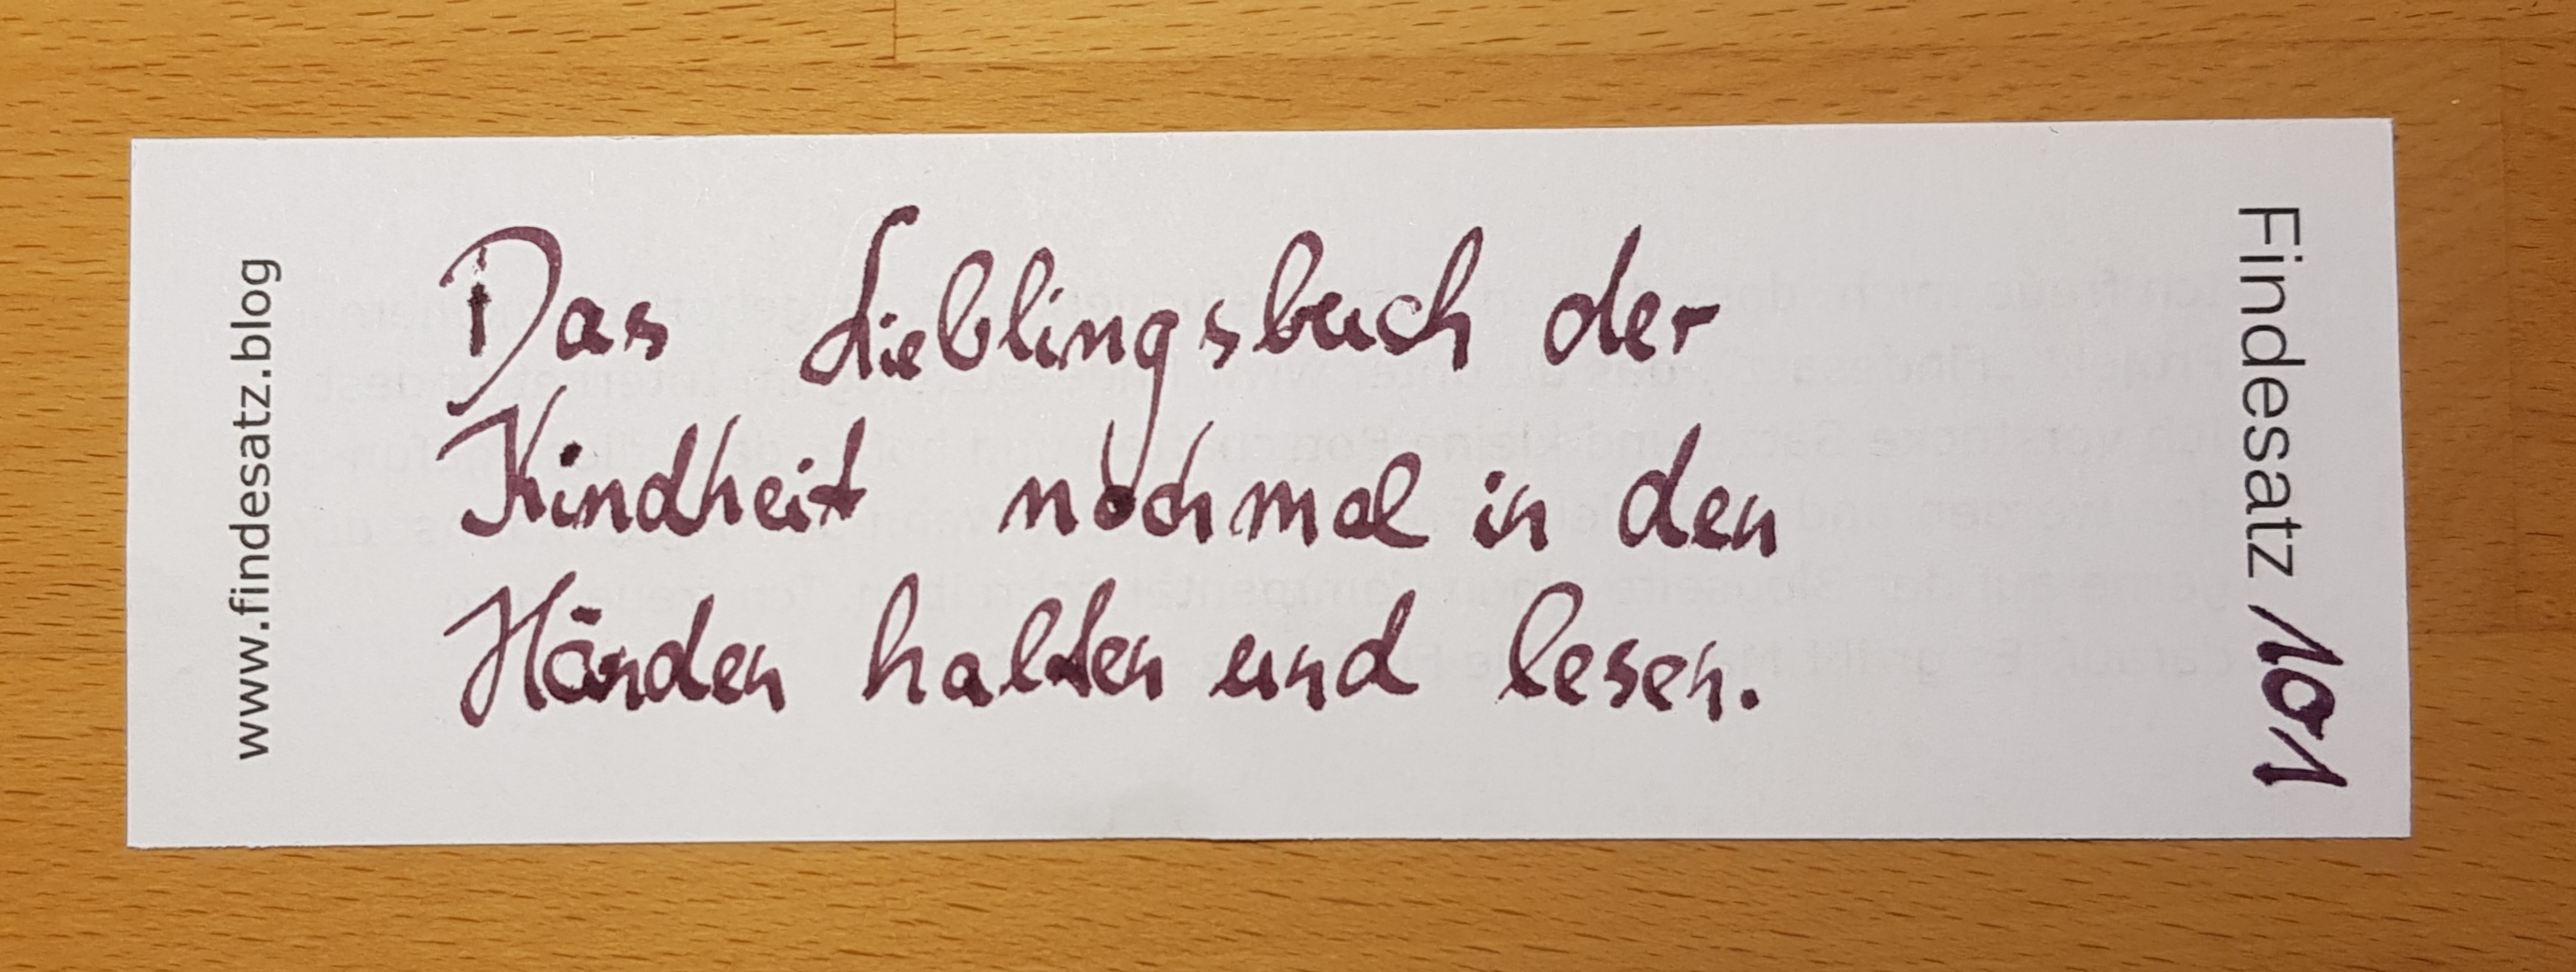 www.findesatz.blog
Das Lieblingsbuch der
Kindheit nochmal in den
Händen halten und lesen.
Findesatz 101